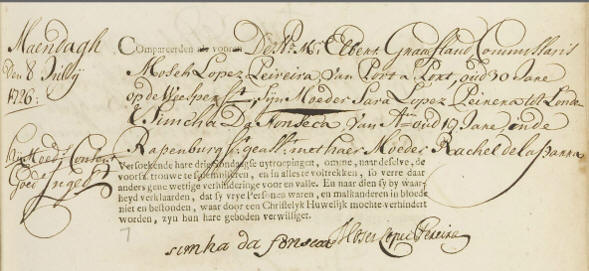 Maendagh
den 8 Julij
1726:
Compareerden als vooren Derk: Mr: Elbert Graafland Commissaris
Moseh Lopez Peireira, van Port a Port, oud 30 Jare
op de Weesper str, Sijn Moeder Sara Lopez Peirera tot Londe
& Simcha Da Fonseca van Am oud 19 Jare, inde
Rapenburg Str geast met haer Moeder Rachel de la Panna
Hij Moeds Consent
Goed Ingebr
Versoekende hare drie Sondaagse uytroepingen, omme, naar deselve, de
voorsz. trouwe te solemniseren, en in alles te voltrekken, so verre daar
anders gene wettige verhinderinge voor en valle. En naar dien sy by waar-
heyd verklaarden, dat sy vrye Personen waren, en malkanderen in bloede
niet en bestonden, waar door een Christelyk Huwelijk mochte verhindert
worden, zyn hun hare geboden verwilliget.
simha da fonseca Moser Lopes Pereira